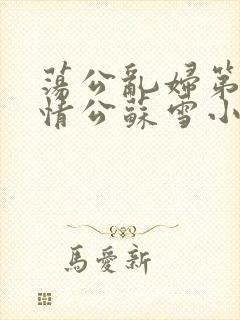 蕩公亂婦第
情公蘇雪小
馬愛新